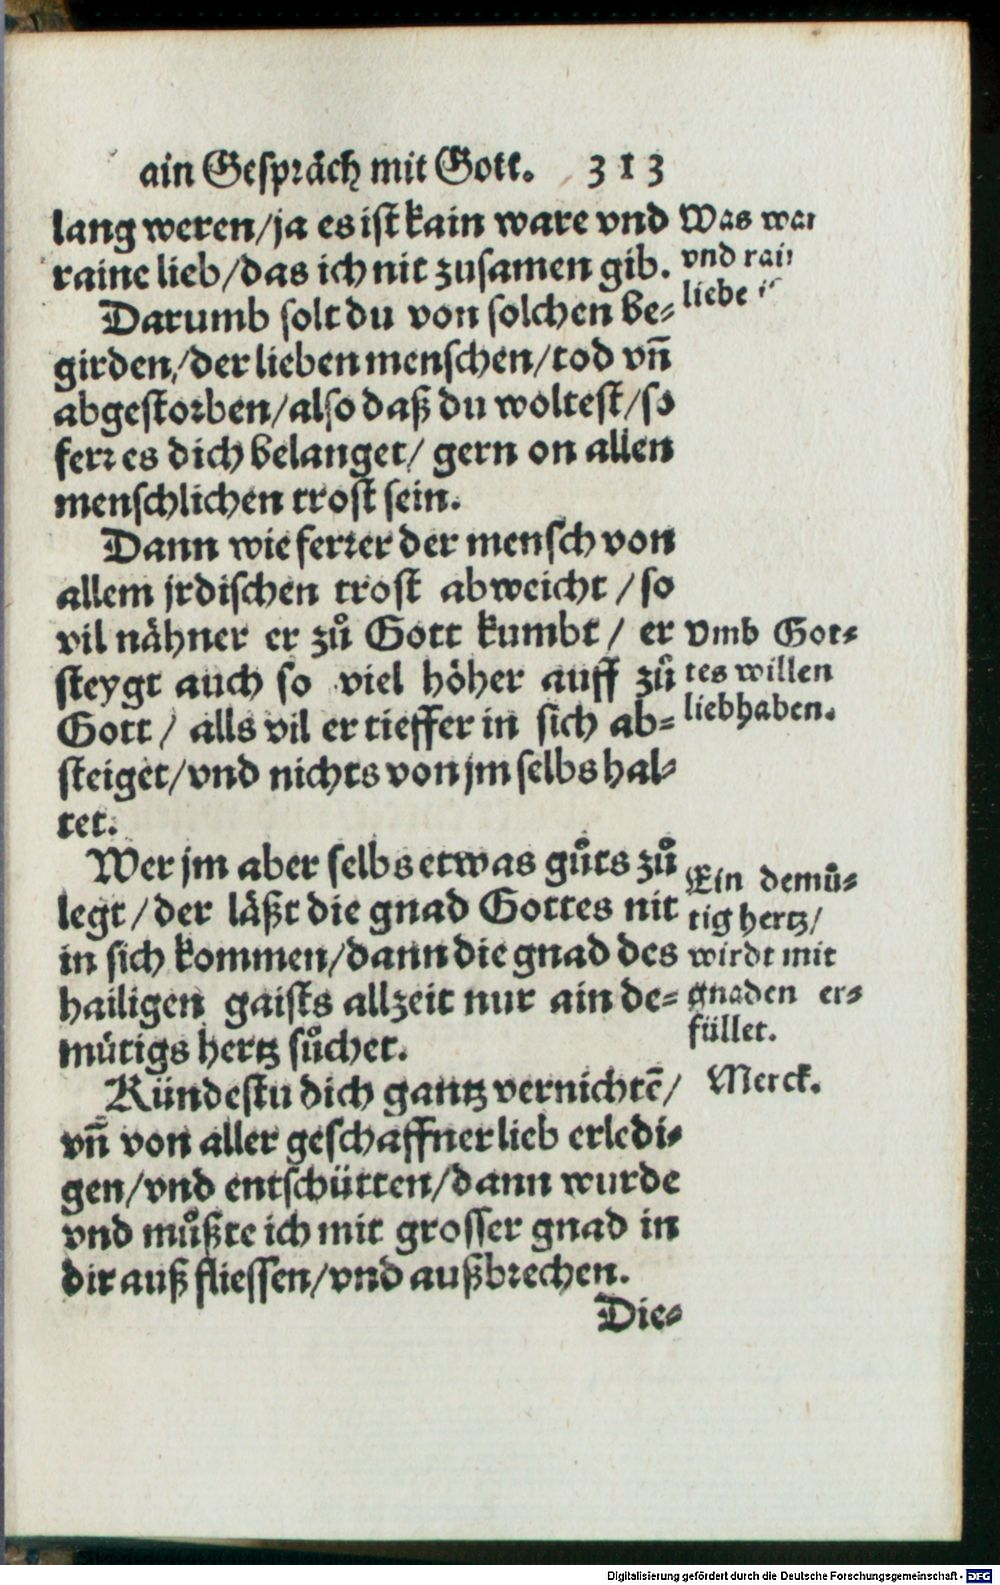 ain Gespräch mit Gott. 313
lang weren/ja es ist kain ware vnd
raine lieb/das ich nit zusamen gib.
Darumb solt du von solchen be-
girden/der lieben menschen/tod vn̄
abgestorben/also daß du woltest/so
ferr es dich belanget/ gern on allen
menschlichen trost sein.
Dann wie ferrer der mensch von
allem jrdischen trost abweicht/so
vil nähner er zů Gott kumbt/ er
steygt auch so viel höher auff zů
Gott/ alls vil er tieffer in sich ab-
steiget/vnd nichts von jm selbs hal-
tet.
Wer jm aber selbs etwas gůts zů
legt/der läßt die gnad Gottes nit
in sich kommen/dann die gnad des
hailigen gaists allzeit nur ain de-
mütigs hertz sůchet.
Kündestu dich gantz vernichtē/
vn̄ von aller geschaffner lieb erledi-
gen/vnd entschütten/dann wurde
vnd můßte ich mit grosser gnad in
dir auß fliessen/vnd außbrechen.
Die-
Was
vnd
liebe
Vmb Got-
tes willen
liebhaben.
Ein demů-
tig hertz/
wirdt mit
gnaden er-
füllet.
Merck.
Digitalisierung gefördert durch die Deutsche Forschungsgemeinschaft - DFG